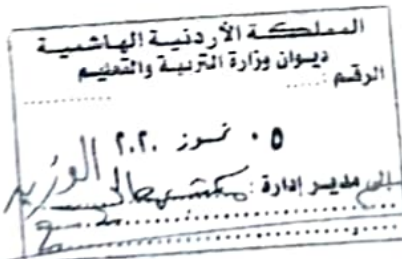 المملكة الأردنية الهاشمية
ديوان وزارة التربية والتعليم
الرقم :
٠٥ تموز ٢٠٢٠
إلى مدير إدارة : مكتب معالي الوزير